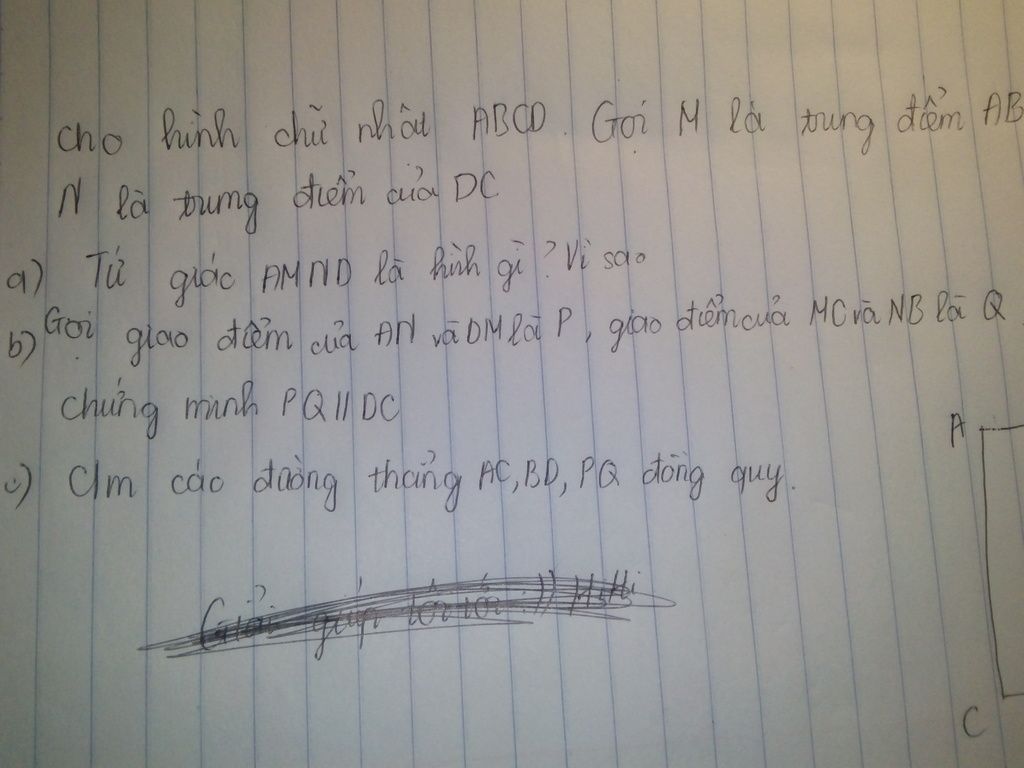 cho hình chữ nhật ABCD. Gọi M là trung điểm AB
N là trung điểm của DC
a) Tứ giác AMND là hình gì? Vì sao
b) Gọi giao điểm của AN và DM là P, giao điểm của MC và NB là Q
chứng minh PQ // DC
c) C/m các đường thẳng AC, BD, PQ đồng quy.
A
C